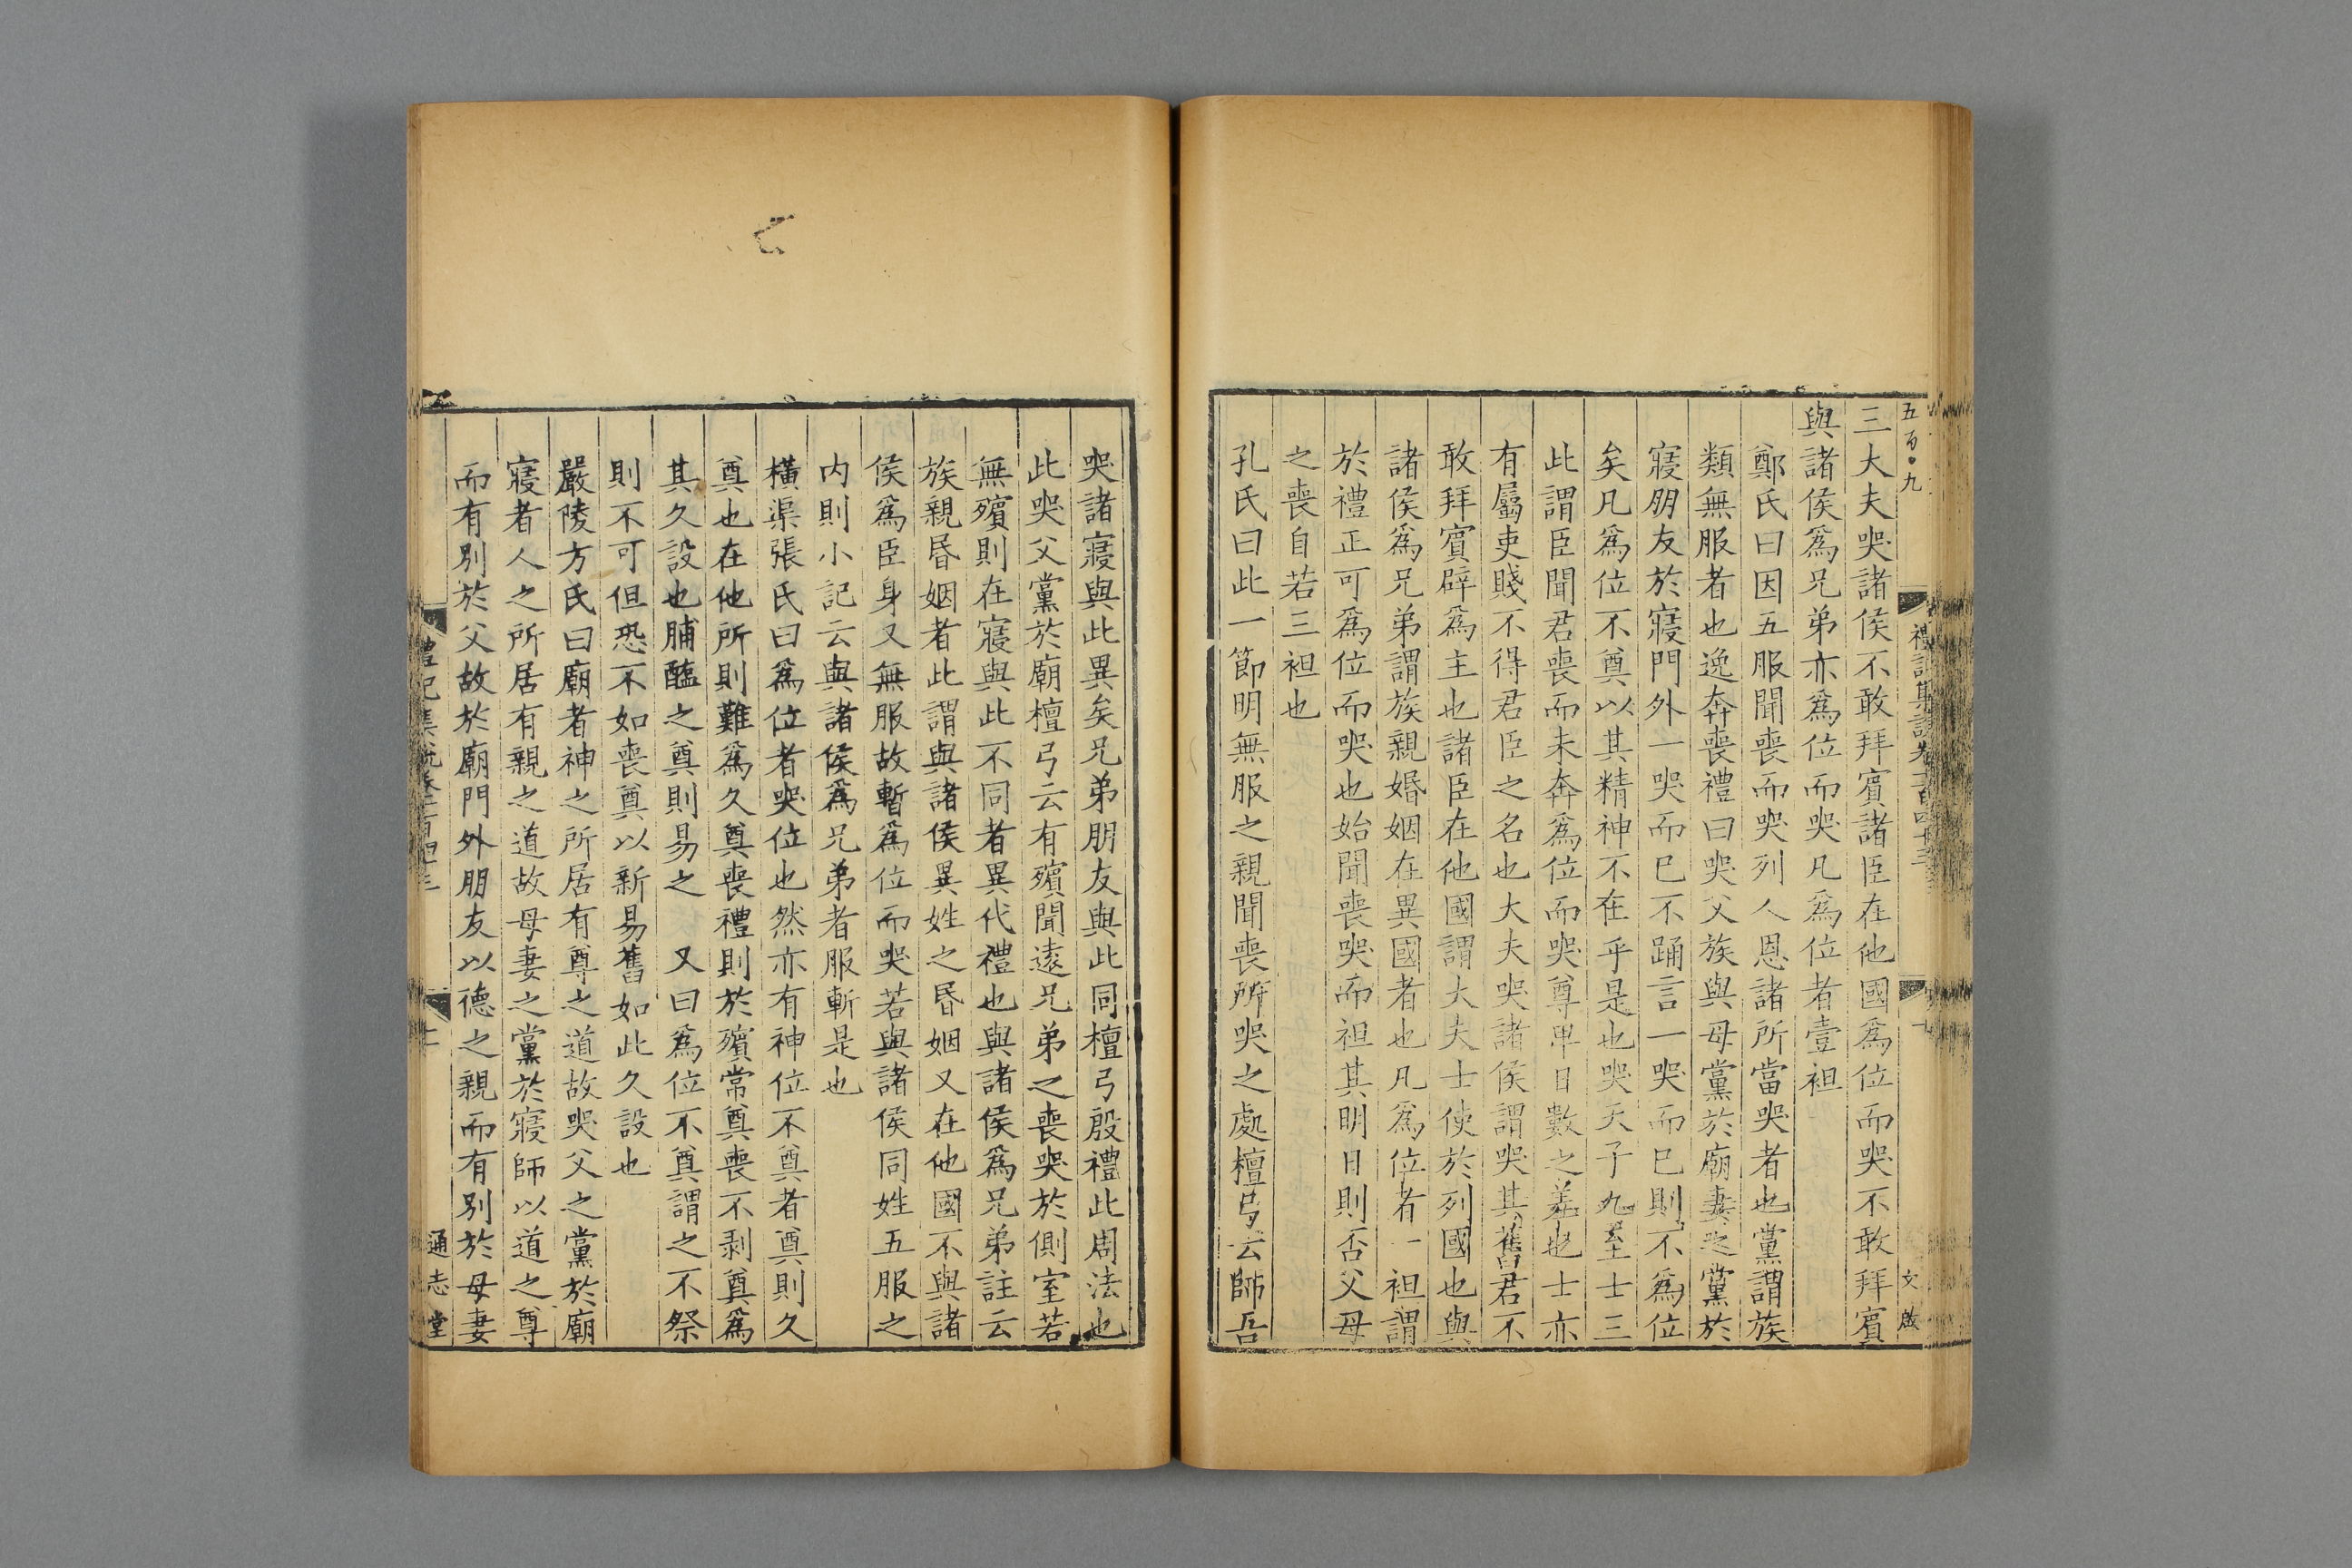 五百九
禮記集説卷一百四十三
文啟
三大夫哭諸侯不敢拜賓諸臣在他國爲位而哭不敢拜賓
與諸侯爲兄弟亦爲位而哭凡爲位者壹袒
鄭氏曰因五服聞喪而哭列人恩諸所當哭者也黨謂族
類無服者也逸奔喪禮曰哭父族與母黨於廟妻之黨於
寢朋友於寢門外一哭而已不踊言一哭而已則不爲位
矣凡爲位不奠以其精神不在乎是也哭天子九至士三
此謂臣聞君喪而未奔爲位而哭尊卑日數之差也士亦
有屬吏賤不得君臣之名也大夫哭諸侯謂哭其舊君不
敢拜賓辟爲主也諸臣在他國謂大夫士使於列國也與
諸侯爲兄弟謂族親婚姻在異國者也凡爲位者一袒謂
於禮正可爲位而哭也始聞喪哭而袒其明日則否父母
之喪自若三袒也
孔氏曰此一節明無服之親聞喪所哭之處檀弓云師吾
哭諸寢與此異矣兄弟朋友與此同檀弓殷禮此周法也
此哭父黨於廟檀弓云有殯聞遠兄弟之喪哭於側室若
無殯則在寢與此不同者異代禮也與諸侯爲兄弟註云
族親昬姻者此謂與諸侯異姓之昬姻又在他國不與諸
侯爲臣身又無服故暫爲位而哭若與諸侯同姓五服之
内則小記云與諸侯爲兄弟者服斬是也
橫渠張氏曰爲位者哭位也然亦有神位不奠者奠則久
奠也在他所則難爲久奠喪禮則於殯常奠喪不剥奠爲
其久設也脯醢之奠則易之　又曰爲位不奠謂之不祭
則不可但恐不如喪奠以新易舊如此久設也
嚴陵方氏曰廟者神之所居有尊之道故哭父之黨於廟
寢者人之所居有親之道故母妻之黨於寢師以道之尊
而有別於父故於廟門外朋友以德之親而有別於母妻
禮記集説卷一百四十三
十一
通志堂